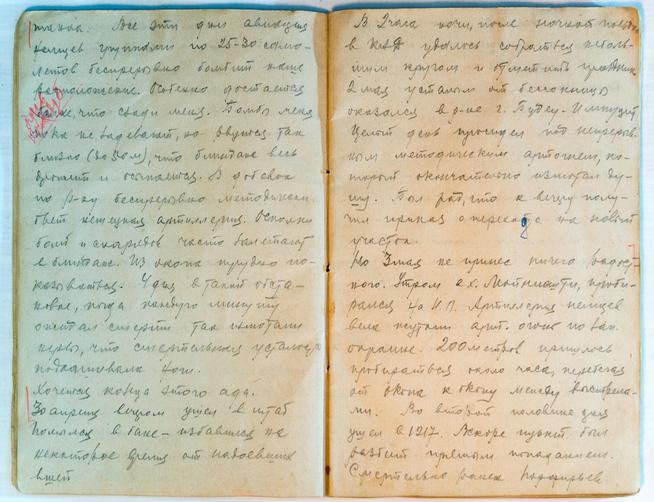 танка. Все эти дни авиация
немцев группами по 25-30 само-
летов беспрерывно бомбит наше
расположение. Особенно достается
что сзади меня. Бомбы меня
пока не задевают, но рвутся так
близко (до 20м), что блиндаж весь
дрожит и осыпается. В добавок
по р-ну беспрерывно методически
бьет немецкая артиллерия. Осколки
бомб и снарядов часто залетают
в блиндаж. Из окопа трудно по-
казываться. 4 дня в такой обста-
новке, когда каждую минуту
ожидал смерти так измотали
нервы, что смертельная усталость
подкашивала ноги.
Хочется конца этого ада.
30 апреля вечером ушел в штаб
помылся в бане - избавился на
некоторое время от надоевших
вшей
В 2 часа ночи, после ночной
в удалось собраться неболь-
шим кругом и отметить праздник
2 мая усталым от бессонницы
оказался в р-не г.
Целый день просидел под непрерыв-
ным методическим артогнем, ко-
торый окончательно измотал ду-
шу. Был рад, что к вечеру полу-
чил приказ о переезде на новый
участок.
Но 3 мая не принес ничего радост-
ного. Утром в х. проби-
рался на Н.П. Артиллерия немцев
вела жуткий арт. огонь по
окраине. 200 метров пришлось
пробираться около часа, перебегая
от окопа к окопу между выстрела-
ми. Во второй половине дня
ушел в 1217. Вскоре пункт был
разбит прямым попаданием.
Смертельно ранен Порфирьев.